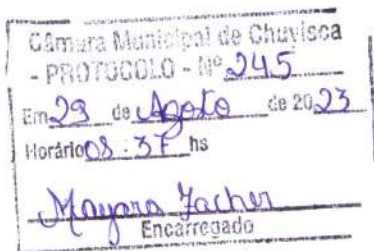 Câmara Municipal de Chuvisca
- PROTOCOLO - Nº 245
Em 29 de Agosto de 2023
Horário 08:37 hs
Mayara Zacher
Encarregado